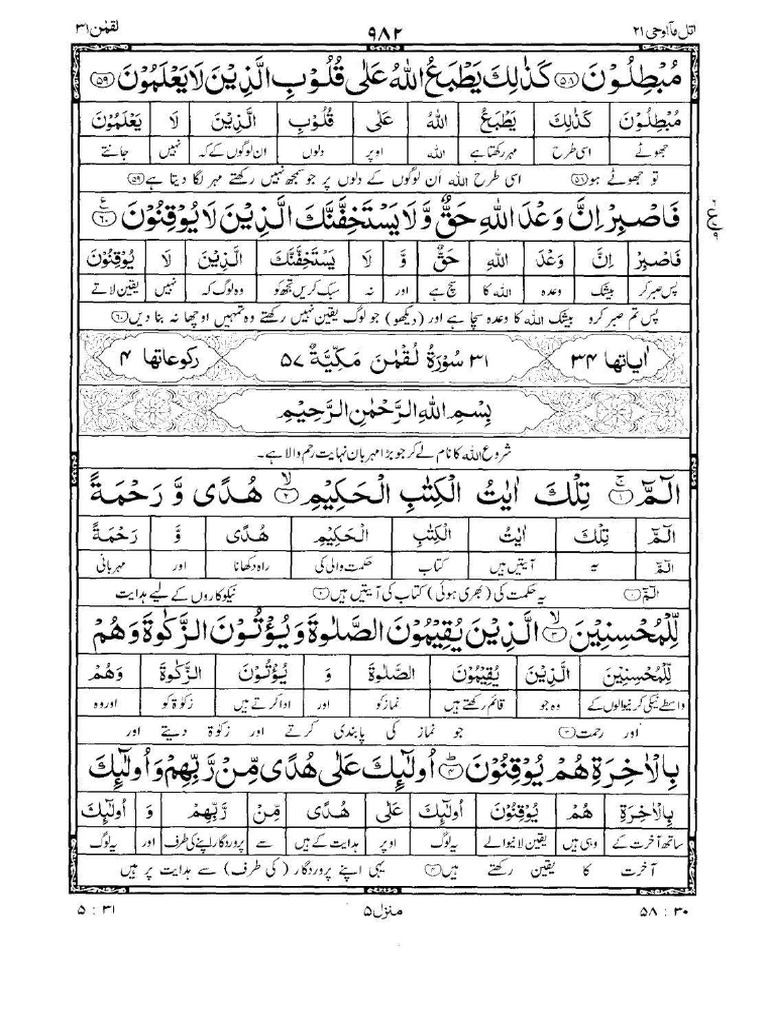 اتل مآاوحی ۲۱ ۹۸۲ لقمٰن ۳۱
مُبْطِلُوْنَ ﴿۵۸﴾ كَذٰلِكَ يَطْبَعُ اللّٰهُ عَلٰى قُلُوْبِ الَّذِيْنَ لَا يَعْلَمُوْنَ ﴿۵۹﴾
مُبْطِلُوْنَ كَذٰلِكَ يَطْبَعُ اللّٰهُ عَلٰى قُلُوْبِ الَّذِيْنَ لَا يَعْلَمُوْنَ
جھوٹے اسی طرح مہر رکھتا ہے اللہ اوپر دلوں ان لوگوں کے کہ نہیں جانتے
تو جھوٹے ہو ﴿۵۸﴾ اسی طرح اللہ اُن لوگوں کے دلوں پر جو سمجھ نہیں رکھتے مہر لگا دیتا ہے ﴿۵۹﴾
فَاصْبِرْ اِنَّ وَعْدَ اللّٰهِ حَقٌّ وَّ لَا يَسْتَخِفَّنَّكَ الَّذِيْنَ لَا يُوْقِنُوْنَ ﴿۶۰﴾
فَاصْبِرْ اِنَّ وَعْدَ اللّٰهِ حَقٌّ وَّ لَا يَسْتَخِفَّنَّكَ الَّذِيْنَ لَا يُوْقِنُوْنَ
پس صبر کر بیشک وعدہ اللہ کا سچ ہے اور نہ سبک کریں تجھ کو وہ لوگ کہ نہیں یقین لاتے
پس تم صبر کرو بیشک اللہ کا وعدہ سچا ہے اور (دیکھو) جو لوگ یقین نہیں رکھتے وہ تمہیں اوچھا نہ بنا دیں ﴿۶۰﴾
اٰیاتها ۳۴ ۳۱ سُوْرَةُ لُقْمٰنَ مَكِّيَّةٌ ۵۷ رکوعاتها ۴
بِسْمِ اللّٰهِ الرَّحْمٰنِ الرَّحِيْمِ
شروع اللہ کا نام لے کر جو بڑا مہربان نہایت رحم والا ہے۔
الٓمّٓ ﴿۱﴾ تِلْكَ اٰيٰتُ الْكِتٰبِ الْحَكِيْمِ ﴿۲﴾ هُدًى وَّ رَحْمَةً
الٓمّٓ تِلْكَ اٰيٰتُ الْكِتٰبِ الْحَكِيْمِ هُدًى وَّ رَحْمَةً
الٓمّٓ یہ آیتیں ہیں کتاب حکمت والی کی راہ دکھانا اور مہربانی
الٓمّٓ ﴿۱﴾ یہ حکمت کی (بھری ہوئی) کتاب کی آیتیں ہیں ﴿۲﴾ نیکوکاروں کے لیے ہدایت
لِّلْمُحْسِنِيْنَ ﴿۳﴾ الَّذِيْنَ يُقِيْمُوْنَ الصَّلٰوةَ وَ يُؤْتُوْنَ الزَّكٰوةَ وَ هُمْ
لِّلْمُحْسِنِيْنَ الَّذِيْنَ يُقِيْمُوْنَ الصَّلٰوةَ وَ يُؤْتُوْنَ الزَّكٰوةَ وَهُمْ
واسطے نیکی کرنیوالوں کے وہ جو قائم رکھتے ہیں نماز کو اور ادا کرتے ہیں زکوٰۃ کو اور وہ
اور رحمت ﴿۳﴾ جو نماز کی پابندی کرتے اور زکوٰۃ دیتے اور
بِالْاٰخِرَةِ هُمْ يُوْقِنُوْنَ ﴿۴﴾ اُولٰٓئِكَ عَلٰى هُدًى مِّنْ رَّبِّهِمْ وَ اُولٰٓئِكَ
بِالْاٰخِرَةِ هُمْ يُوْقِنُوْنَ اُولٰٓئِكَ عَلٰى هُدًى مِّنْ رَّبِّهِمْ وَ اُولٰٓئِكَ
ساتھ آخرت کے وہی ہیں یقین لانیوالے یہ لوگ اوپر ہدایت کے ہیں سے پروردگار اپنے کی طرف اور یہ لوگ
آخرت کا یقین رکھتے ہیں ﴿۴﴾ یہی اپنے پروردگار (کی طرف) سے ہدایت پر ہیں
۳۰ : ۵۸ منزل ۵ ۳۱ : ۵